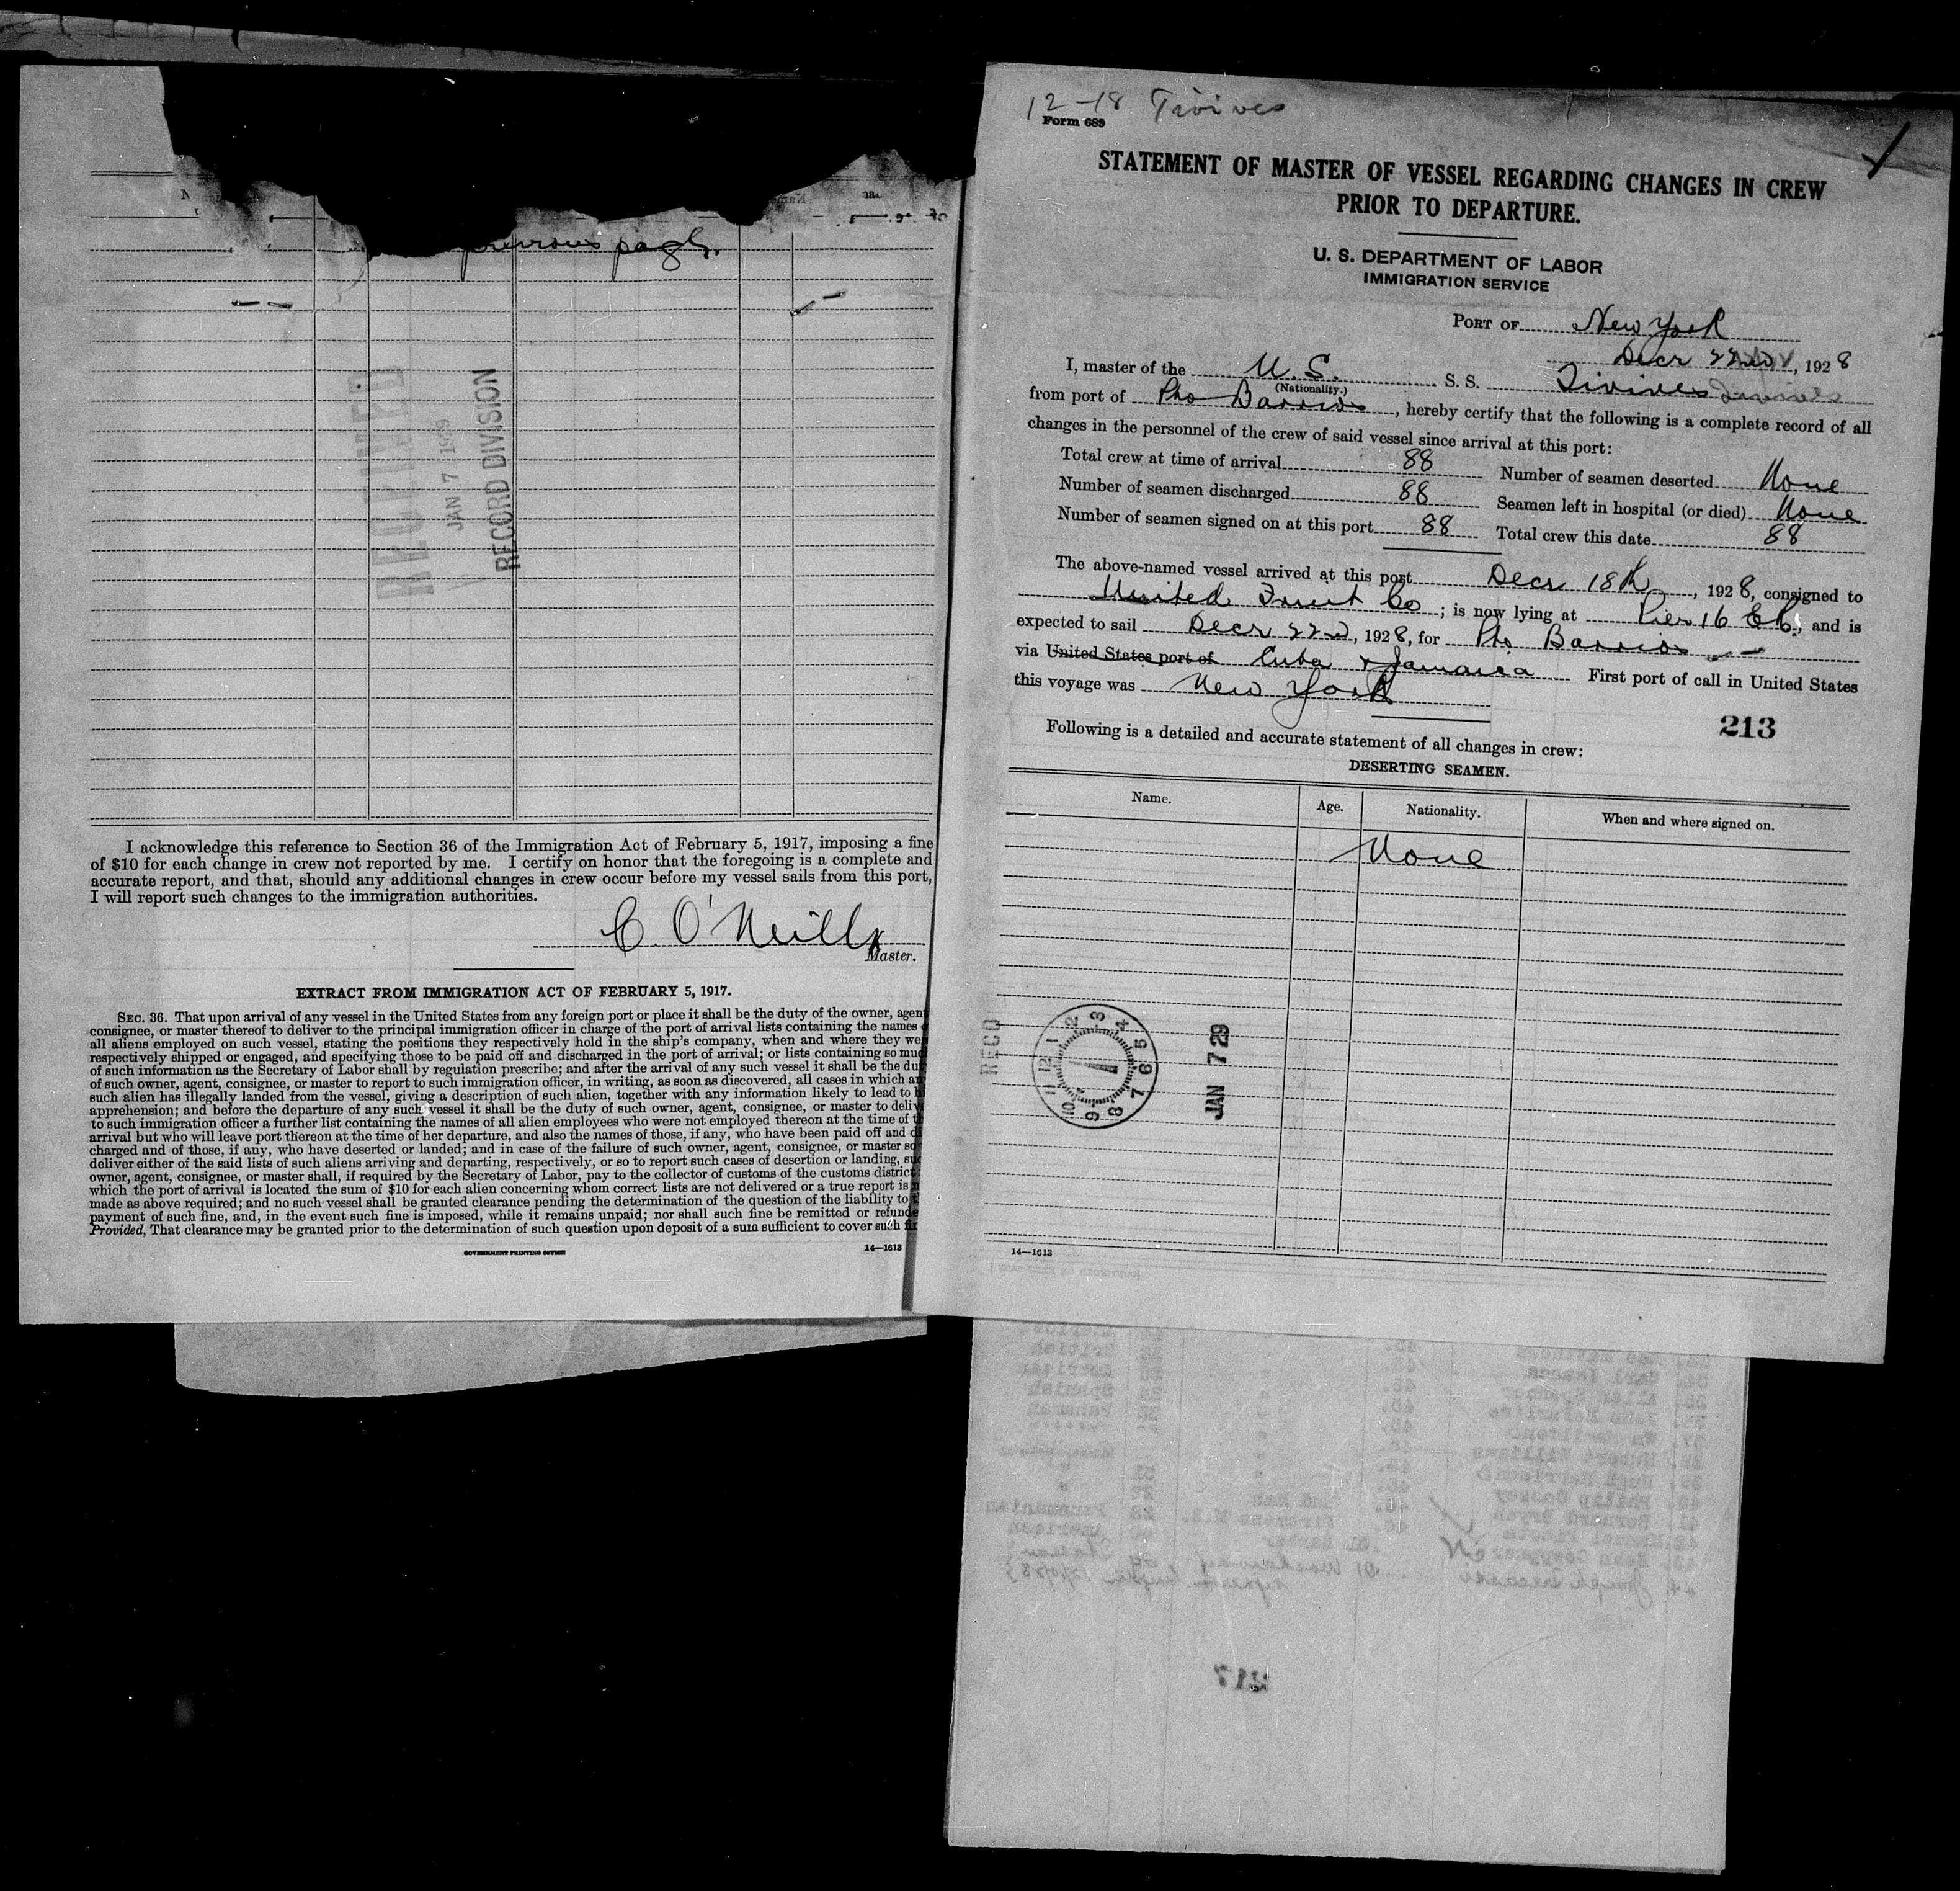 previous page.
RECEIVED
JAN 7 1929
RECORD DIVISION
I acknowledge this reference to Section 36 of the Immigration Act of February 5, 1917, imposing a fine
of $10 for each change in crew not reported by me. I certify on honor that the foregoing is a complete and
accurate report, and that, should any additional changes in crew occur before my vessel sails from this port,
I will report such changes to the immigration authorities.
C. O'Neill
Master.
EXTRACT FROM IMMIGRATION ACT OF FEBRUARY 5, 1917.
SEC. 36. That upon arrival of any vessel in the United States from any foreign port or place it shall be the duty of the owner, agent
consignee, or master thereof to deliver to the principal immigration officer in charge of the port of arrival lists containing the names
all aliens employed on such vessel, stating the positions they respectively hold in the ship's company, when and where they we
respectively shipped or engaged, and specifying those to be paid off and discharged in the port of arrival; or lists containing so muc
of such information as the Secretary of Labor shall by regulation prescribe; and after the arrival of any such vessel it shall be the du
of such owner, agent, consignee, or master to report to such immigration officer, in writing, as soon as discovered, all cases in which a
such alien has illegally landed from the vessel, giving a description of such alien, together with any information likely to lead to h
apprehension; and before the departure of any such vessel it shall be the duty of such owner, agent, consignee, or master to deliv
to such immigration officer a further list containing the names of all alien employees who were not employed thereon at the time of t
arrival but who will leave port thereon at the time of her departure, and also the names of those, if any, who have been paid off and d
charged and of those, if any, who have deserted or landed; and in case of the failure of such owner, agent, consignee, or master so
deliver either of the said lists of such aliens arriving and departing, respectively, or so to report such cases of desertion or landing, suc
owner, agent, consignee, or master shall, if required by the Secretary of Labor, pay to the collector of customs of the customs district
which the port of arrival is located the sum of $10 for each alien concerning whom correct lists are not delivered or a true report is
made as above required; and no such vessel shall be granted clearance pending the determination of the question of the liability to
payment of such fine, and, in the event such fine is imposed, while it remains unpaid; nor shall such fine be remitted or refunde
Provided, That clearance may be granted prior to the determination of such question upon deposit of a sum sufficient to cover such
GOVERNMENT PRINTING OFFICE 14—1613
12-18 Tivives
Form 689
STATEMENT OF MASTER OF VESSEL REGARDING CHANGES IN CREW
PRIOR TO DEPARTURE.
U. S. DEPARTMENT OF LABOR
IMMIGRATION SERVICE
PORT OF New York
Decr 22nd, 1928
I, master of the U. S. S. S. Tivives
(Nationality.)
from port of Pto Barrios, hereby certify that the following is a complete record of all
changes in the personnel of the crew of said vessel since arrival at this port:
Total crew at time of arrival 88 Number of seamen deserted None
Number of seamen discharged 88 Seamen left in hospital (or died) None
Number of seamen signed on at this port 88 Total crew this date 88
The above-named vessel arrived at this port Decr 18th, 1928, consigned to
United Fruit Co; is now lying at Pier 16 ER, and is
expected to sail Decr 22nd, 1928, for Pto Barrios
via United States port of Cuba & Jamaica First port of call in United States
this voyage was New York
213
Following is a detailed and accurate statement of all changes in crew:
DESERTING SEAMEN.
Name. Age. Nationality. When and where signed on.
None
RECD
12 1 2 3 4 5 6 7 8 9 10 11
JAN 7 29
14—1613
217